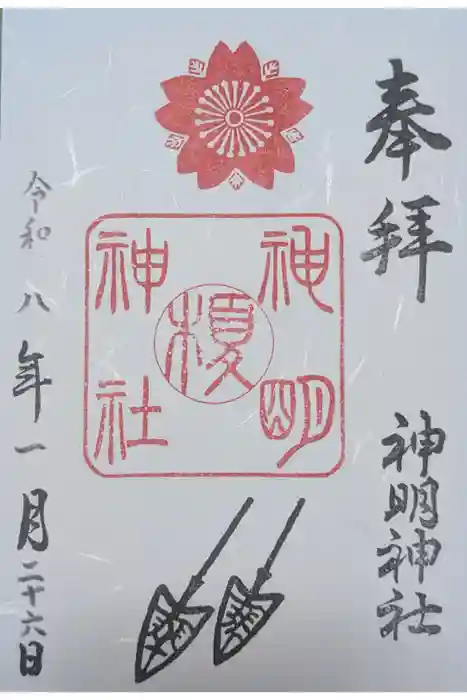 奉拝
神明神社
神明
榎
神社
令和八年一月二十六日